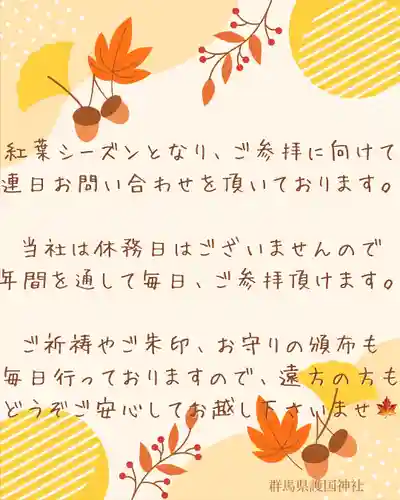 紅葉シーズンとなり、ご参拝に向けて
連日お問い合わせを頂いております。
当社は休務日はございませんので
年間を通して毎日、ご参拝頂けます。
ご祈祷やご朱印、お守りの頒布も
毎日行っておりますので、遠方の方も
どうぞご安心してお越し下さいませ🍁
群馬県護国神社